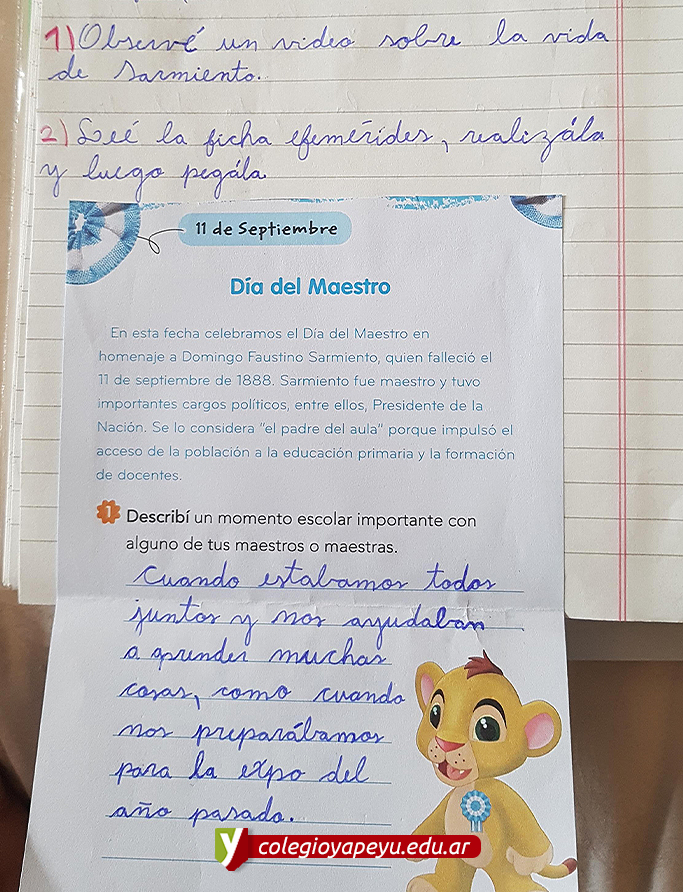 1) Observé un video sobre la vida
de Sarmiento.
2) Leé la ficha efemérides, realizála
y luego pegála.
11 de Septiembre
Día del Maestro
En esta fecha celebramos el Día del Maestro en
homenaje a Domingo Faustino Sarmiento, quien falleció el
11 de septiembre de 1888. Sarmiento fue maestro y tuvo
importantes cargos políticos, entre ellos, Presidente de la
Nación. Se lo considera "el padre del aula" porque impulsó el
acceso de la población a la educación primaria y la formación
de docentes.
1 Describí un momento escolar importante con
alguno de tus maestros o maestras.
Cuando estabamos todos
juntos y nos ayudaban
a aprender muchas
cosas, como cuando
nos preparábamos
para la expo del
año pasado.
y colegioyapeyu.edu.ar